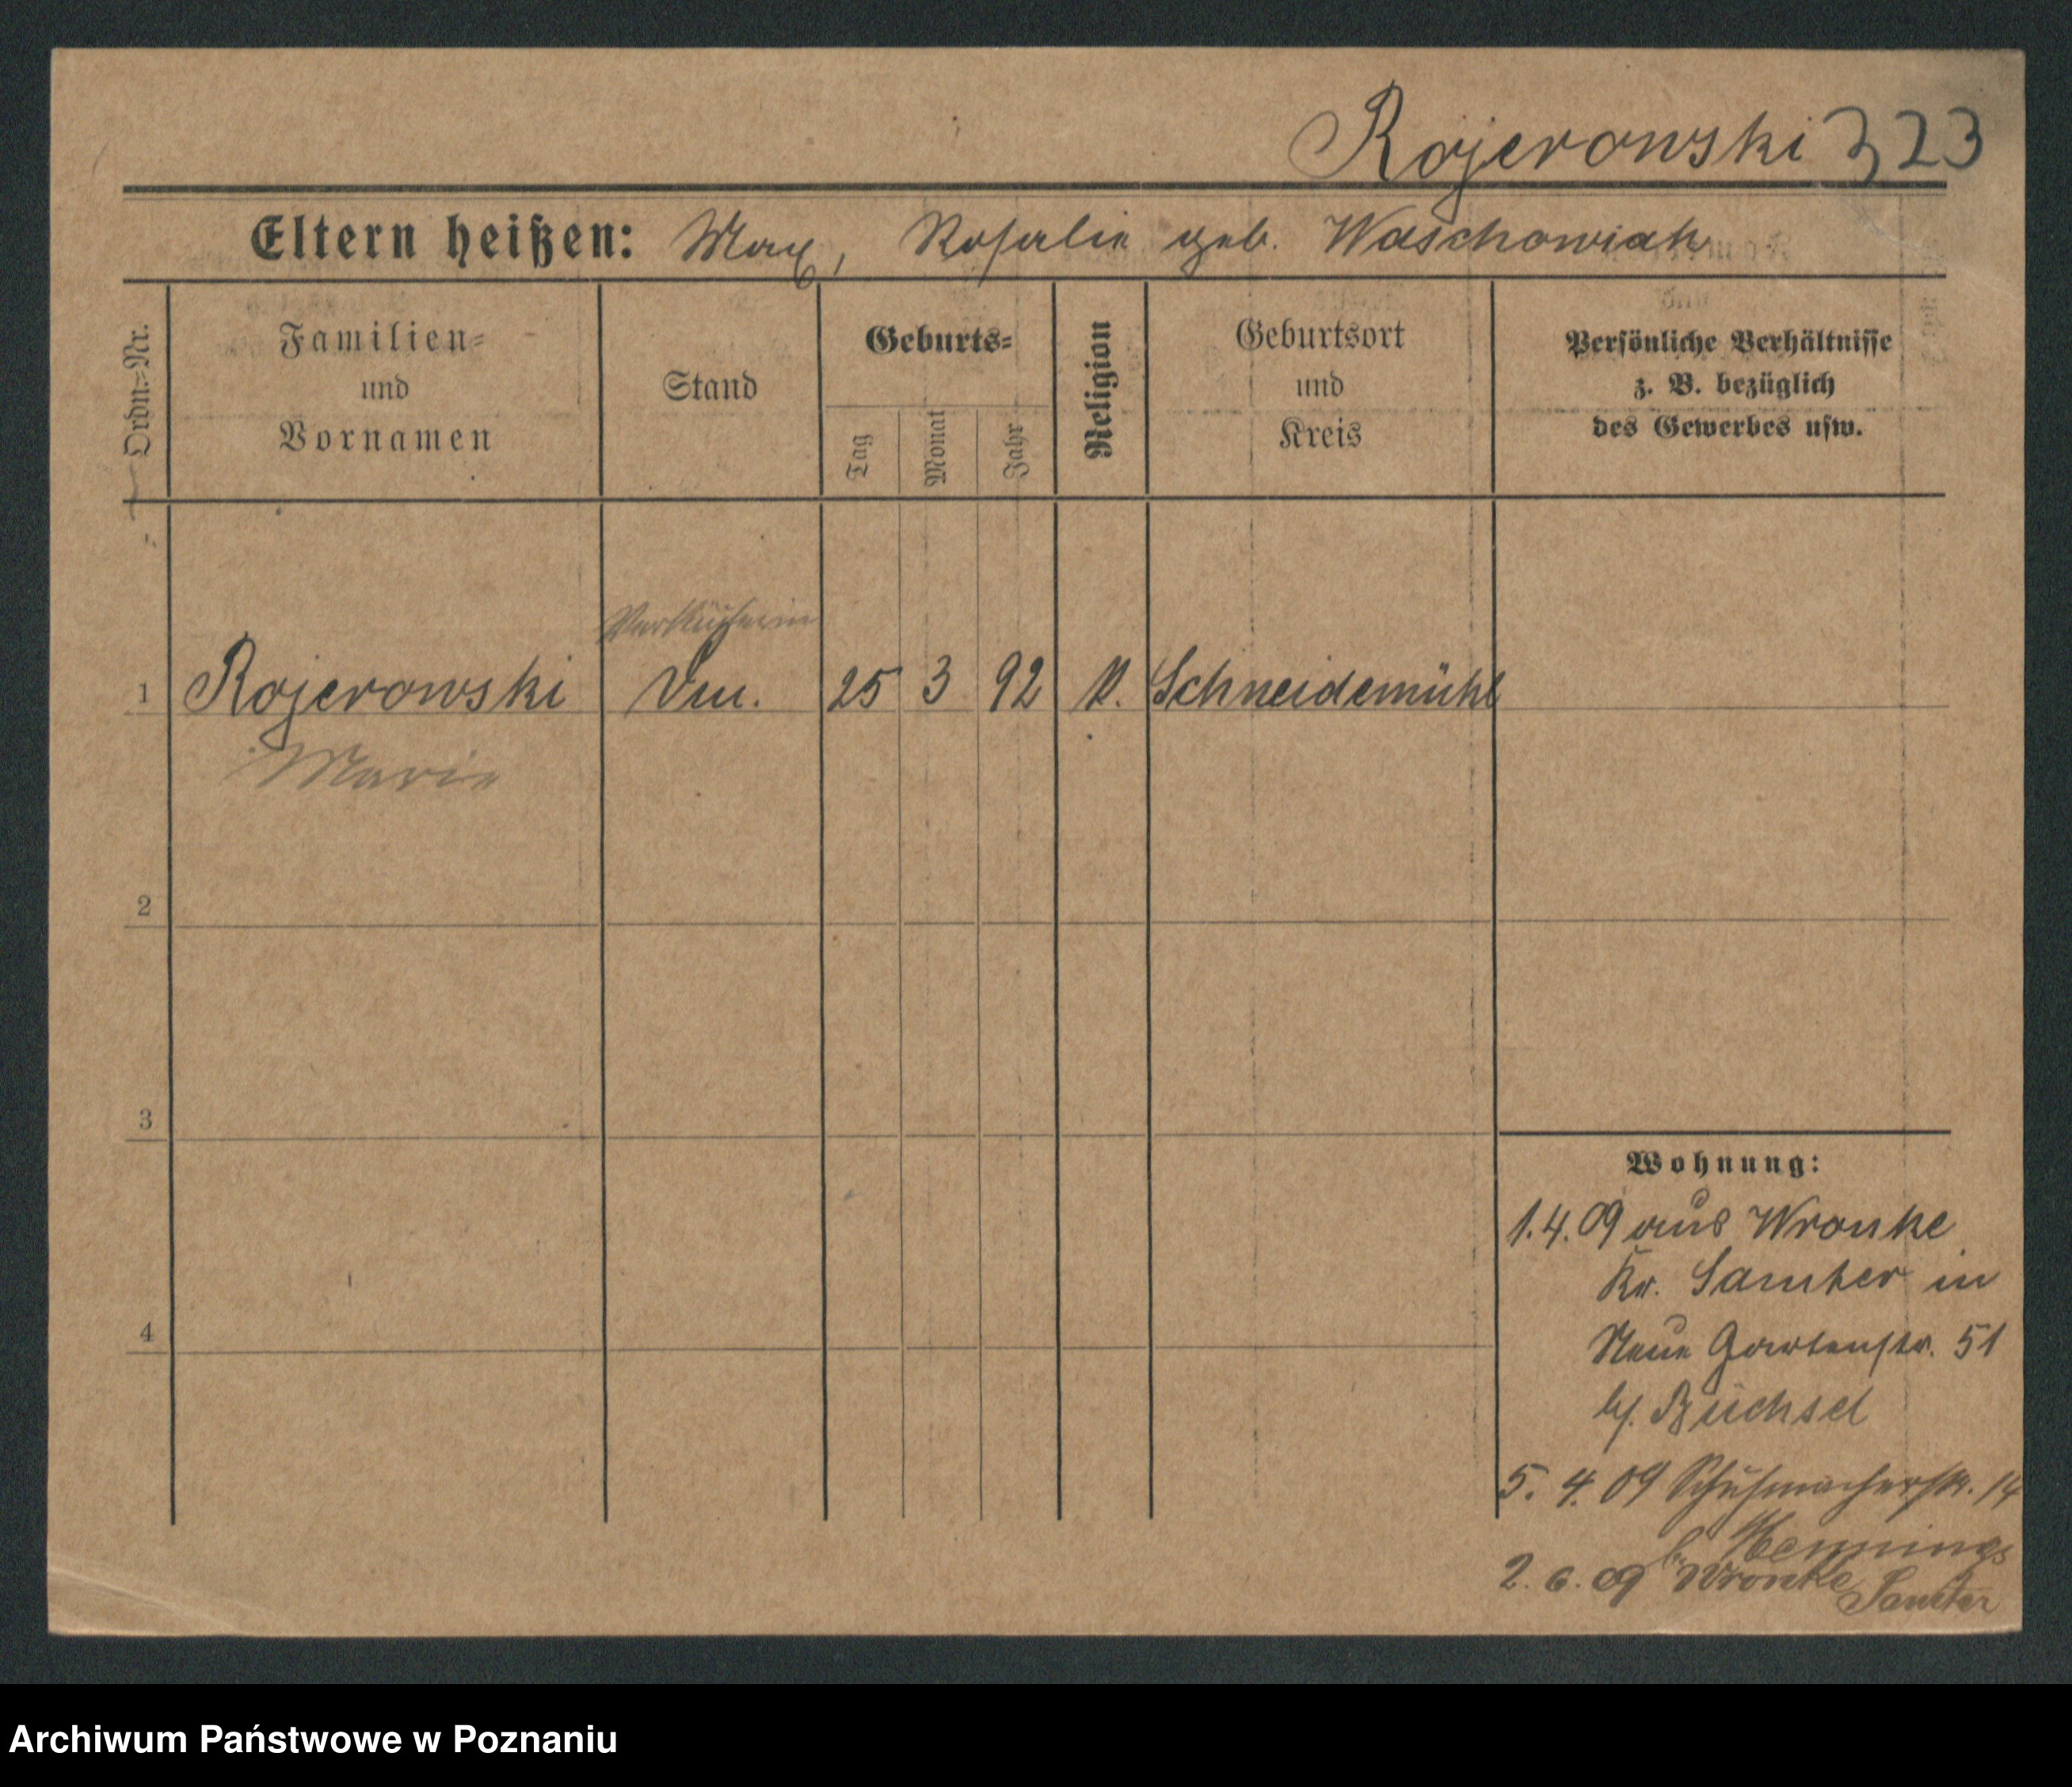 Rojerowski 323
Eltern heißen: Max, Rosalie geb. Waschowiak
Ordn.=Nr.
Familien=
und
Vornamen
Stand
Geburts=
Tag
Monat
Jahr
Religion
Geburtsort
und
Kreis
Persönliche Verhältnisse
z. B. bezüglich
des Gewerbes usw.
1 Rojerowski 25 3 92 k. Schneidemühl
Marie
2
3
4
Wohnung:
1.4.09 aus Wronke
Kr. Samter in
Neue Gartenstr. 51
bei Büchsel
5. 4. 09 Schuhmacherstr. 14
b. Hennings
2. 6. 09 Wronke Samter
Archiwum Państwowe w Poznaniu